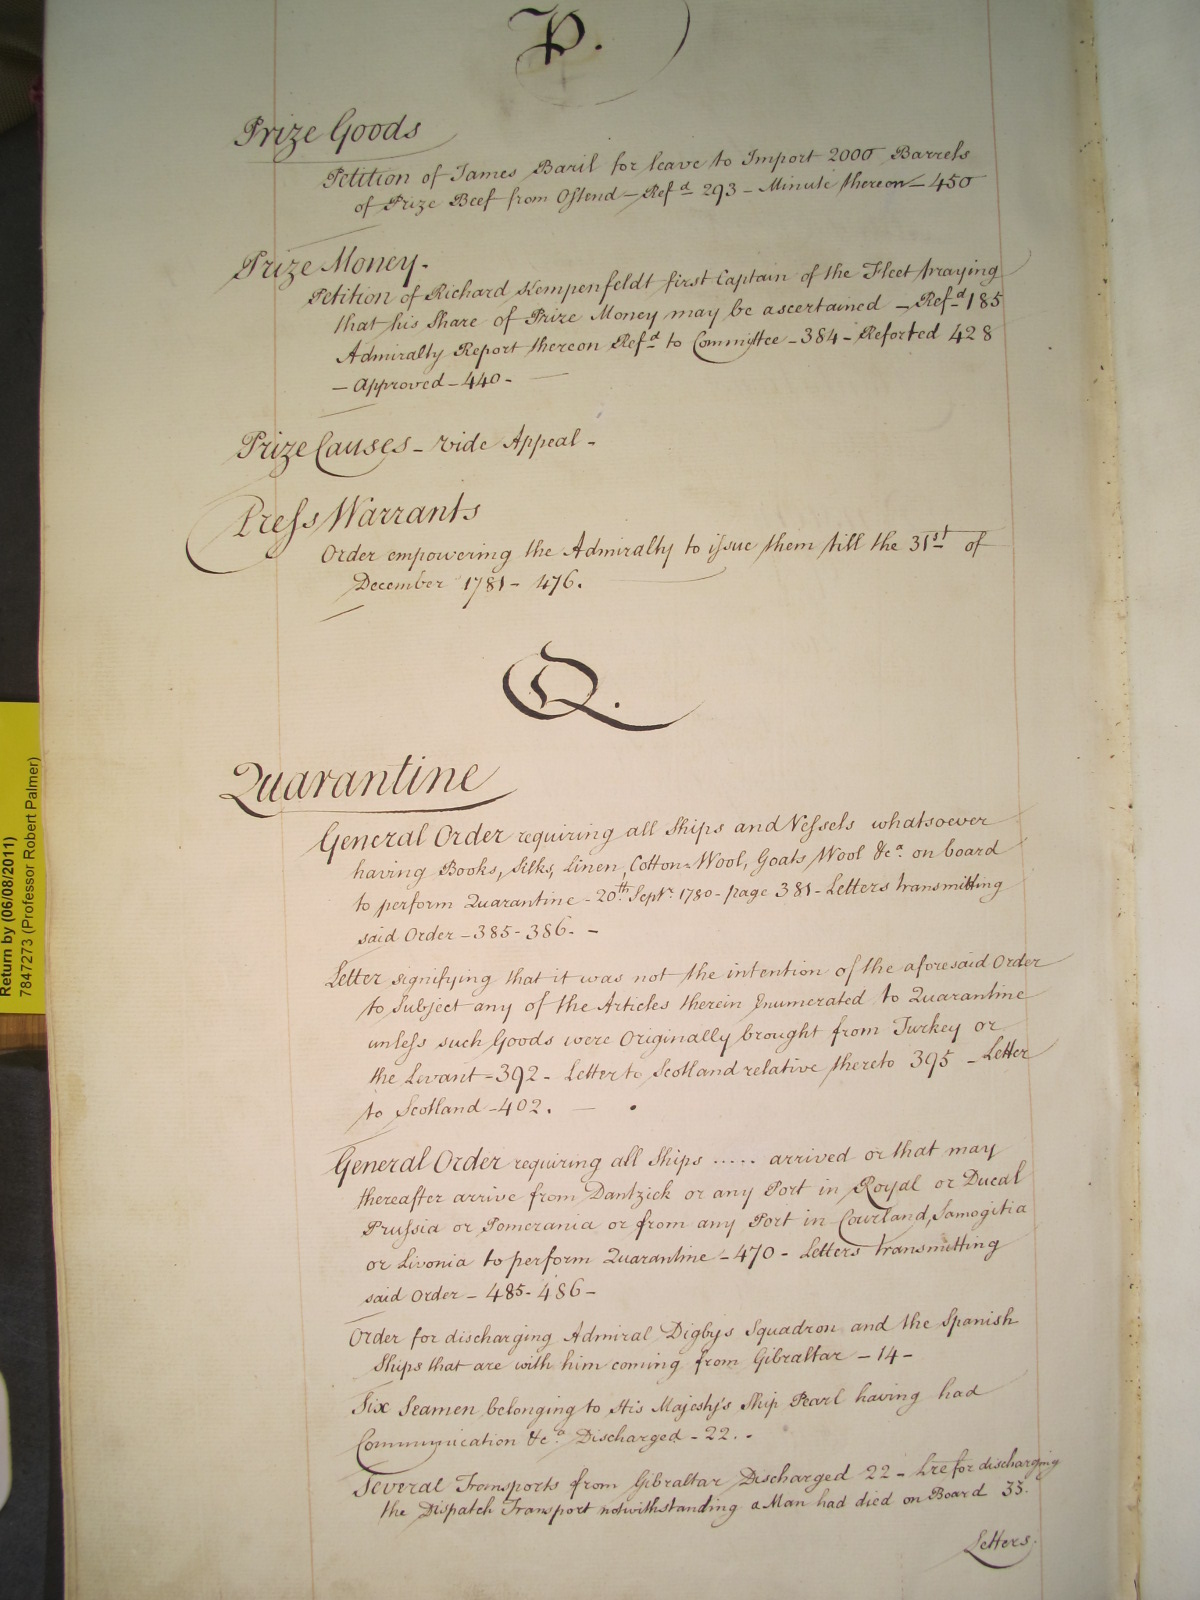 P.
Prize Goods
Petition of James Baril for leave to Import 2000 Barrels
of Prize Beef from Ostend – Refd 293 – Minute thereon – 450
Prize Money.
Petition of Richard Kempenfeldt first Captain of the Fleet praying
that his Share of Prize Money may be ascertained – Refd 185
Admiralty Report thereon Refd to Committee – 384 – Reported 428
– Approved – 440 –
Prize Causes – vide Appeal –
Press Warrants
Order empowering the Admiralty to issue them till the 31st of
December 1781 – 476.
Q.
Quarantine
General Order requiring all Ships and Vessels whatsoever
having Books, Silks, Linen, Cotton=Wool, Goats Wool &ca. on board
to perform Quarantine – 20th Septr 1780 – page 381 – Letters transmitting
said Order – 385 – 386. –
Letter signifying that it was not the intention of the aforesaid Order
to Subject any of the Articles therein Enumerated to Quarantine
unless such Goods were Originally brought from Turkey or
the Levant – 392 – Letter to Scotland relative thereto 395 – Letter
to Scotland – 402. –
General Order requiring all Ships ..... arrived or that may
thereafter arrive from Dantzick or any Port in Royal or Ducal
Prussia or Pomerania or from any Port in Courland, Samogitia
or Livonia to perform Quarantine – 470 – Letters transmitting
said Order – 485 – 486 –
Order for discharging Admiral Digbys Squadron and the Spanish
Ships that are with him coming from Gibraltar – 14 –
Six Seamen belonging to His Majesty's Ship Pearl having had
Communication &ca. Discharged – 22. –
Several Transports from Gibraltar Discharged 22 – Lre for discharging
the Dispatch Transport notwithstanding a Man had died on Board 33.
Letters.
Return by (06/08/2011)
7847273 (Professor Robert Palmer)